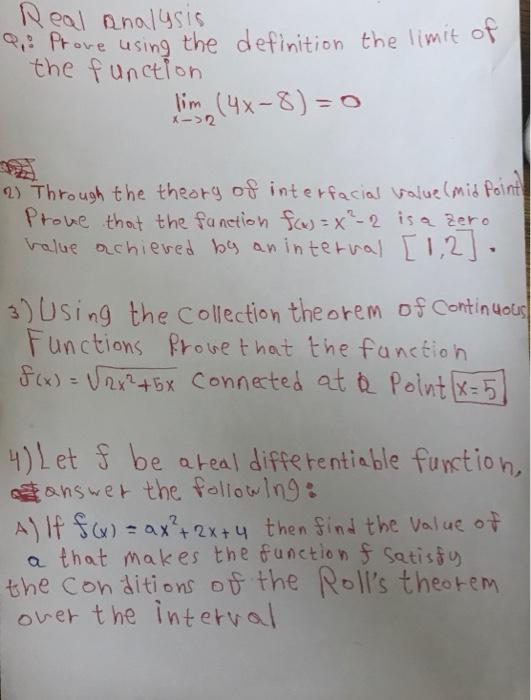 Real analysis
Q₁: Prove using the definition the limit of
the function
lim (4x-8) = 0
x->2
2) Through the theory of interfacial value (mid Point
Prove that the function f(x) = x²-2 is a zero
value achieved by an interval [1,2].
3) Using the collection theorem of Continuous
Functions Prove that the function
f(x) = √2x²+5x Connected at a Point x=5
4) Let f be a real differentiable function,
answer the following:
A) If f(x) = ax²+2x+4 then find the value of
a that makes the function f satisfy
the conditions of the Roll's theorem
over the interval